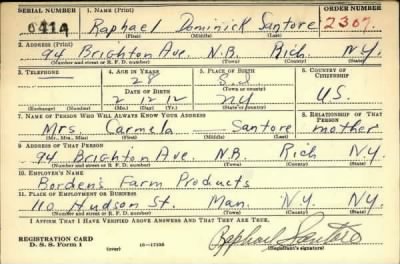 SERIAL NUMBER 1. NAME (Print) ORDER NUMBER
0414 Raphael Dominick Santore 2307.
(First) (Middle) (Last)
2. ADDRESS (Print)
94 Brighton Ave. N.B. Rich. N.Y.
(Number and street or R. F. D. number) (Town) (County) (State)
3. TELEPHONE 4. AGE IN YEARS 5. PLACE OF BIRTH 6. COUNTRY OF CITIZENSHIP
28 S.I.
DATE OF BIRTH (Town or county)
2 12 12 NY U.S.
(Exchange) (Number) (Mo.) (Day) (Yr.) (State or country)
7. NAME OF PERSON WHO WILL ALWAYS KNOW YOUR ADDRESS 8. RELATIONSHIP OF THAT PERSON
Mrs. Carmela Santore mother
(Mr., Mrs., Miss) (First) (Middle) (Last)
9. ADDRESS OF THAT PERSON
94 Brighton Ave. N.B. Rich N.Y.
(Number and street or R. F. D. number) (Town) (County) (State)
10. EMPLOYER'S NAME
Borden's Farm Products
11. PLACE OF EMPLOYMENT OR BUSINESS
110 Hudson St. Man. N.Y. N.Y.
(Number and street or R. F. D. number) (Town) (County) (State)
I AFFIRM THAT I HAVE VERIFIED ABOVE ANSWERS AND THAT THEY ARE TRUE.
Raphael Santore
REGISTRATION CARD
D. S. S. Form 1 (over) 16—17105 (Registrant's signature)